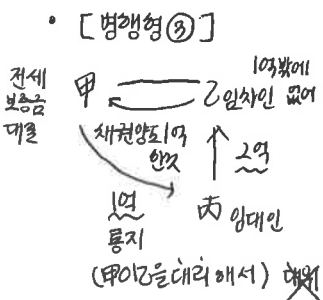 • [병행형③]
전세
보증금
대출
甲
乙 임차인
1억밖에
없어
채권양도 1억
한것
2억
1억
통지
丙 임대인
(甲이乙을대리해서)